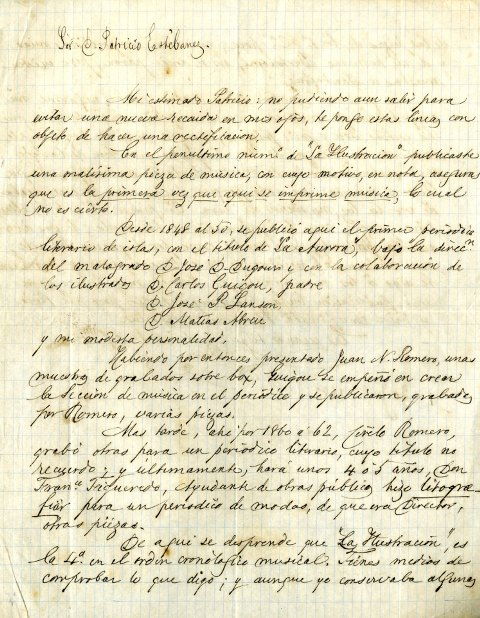 Sor. D. Patricio Estébanez.
Mi estimado Patricio: no pudiendo aun salir para
evitar una nueva recaida en mis ojos, te pongo estas lineas con
objeto de hacer una rectificacion.
En el penultimo núm.º de "La Ilustracion" publicaste
una malisima pieza de música, con cuyo motivo, en nota, aseguras
que es la primera vez que aqui se imprime musica, lo cual
no es ciérto.
Desde 1848 al 50, se publicó aqui el primer periodico
literario de islas, con el titulo de "La Aurora", bajo la direcn.
del malogrado D. José D. Dugour y con la colaboración de
los ilustrados D. Carlos Guigou, padre
D. José P. Sanson
D. Matias Abreu
y mi modesta personalidad.
Habiendo por entonces presentado Juan N. Romero, unas
muestras de grabados sobre box, Guigou se empeñó en crear
la seccion de musica en el periódico y se publicaron, grabadas
por Romero, varias piezas.
Mas tarde, ahí por 1860 a 62, Romero,
grabó otras para un periodico literario, cuyo titulo no
recuerdo; y ultimamente, hará unos 4 o 5 años, Don
Franco. Figueredo, Ayudante de obras públicas hizo litogra-
fiar para un periodico de modas, de que era Director,
otras piezas.
De aqui se desprende que "La Ilustración", es
la 4ª. en el orden cronologico musical. Tienes medios de
comprobar lo que digo; y aunque yo conservaba algunas